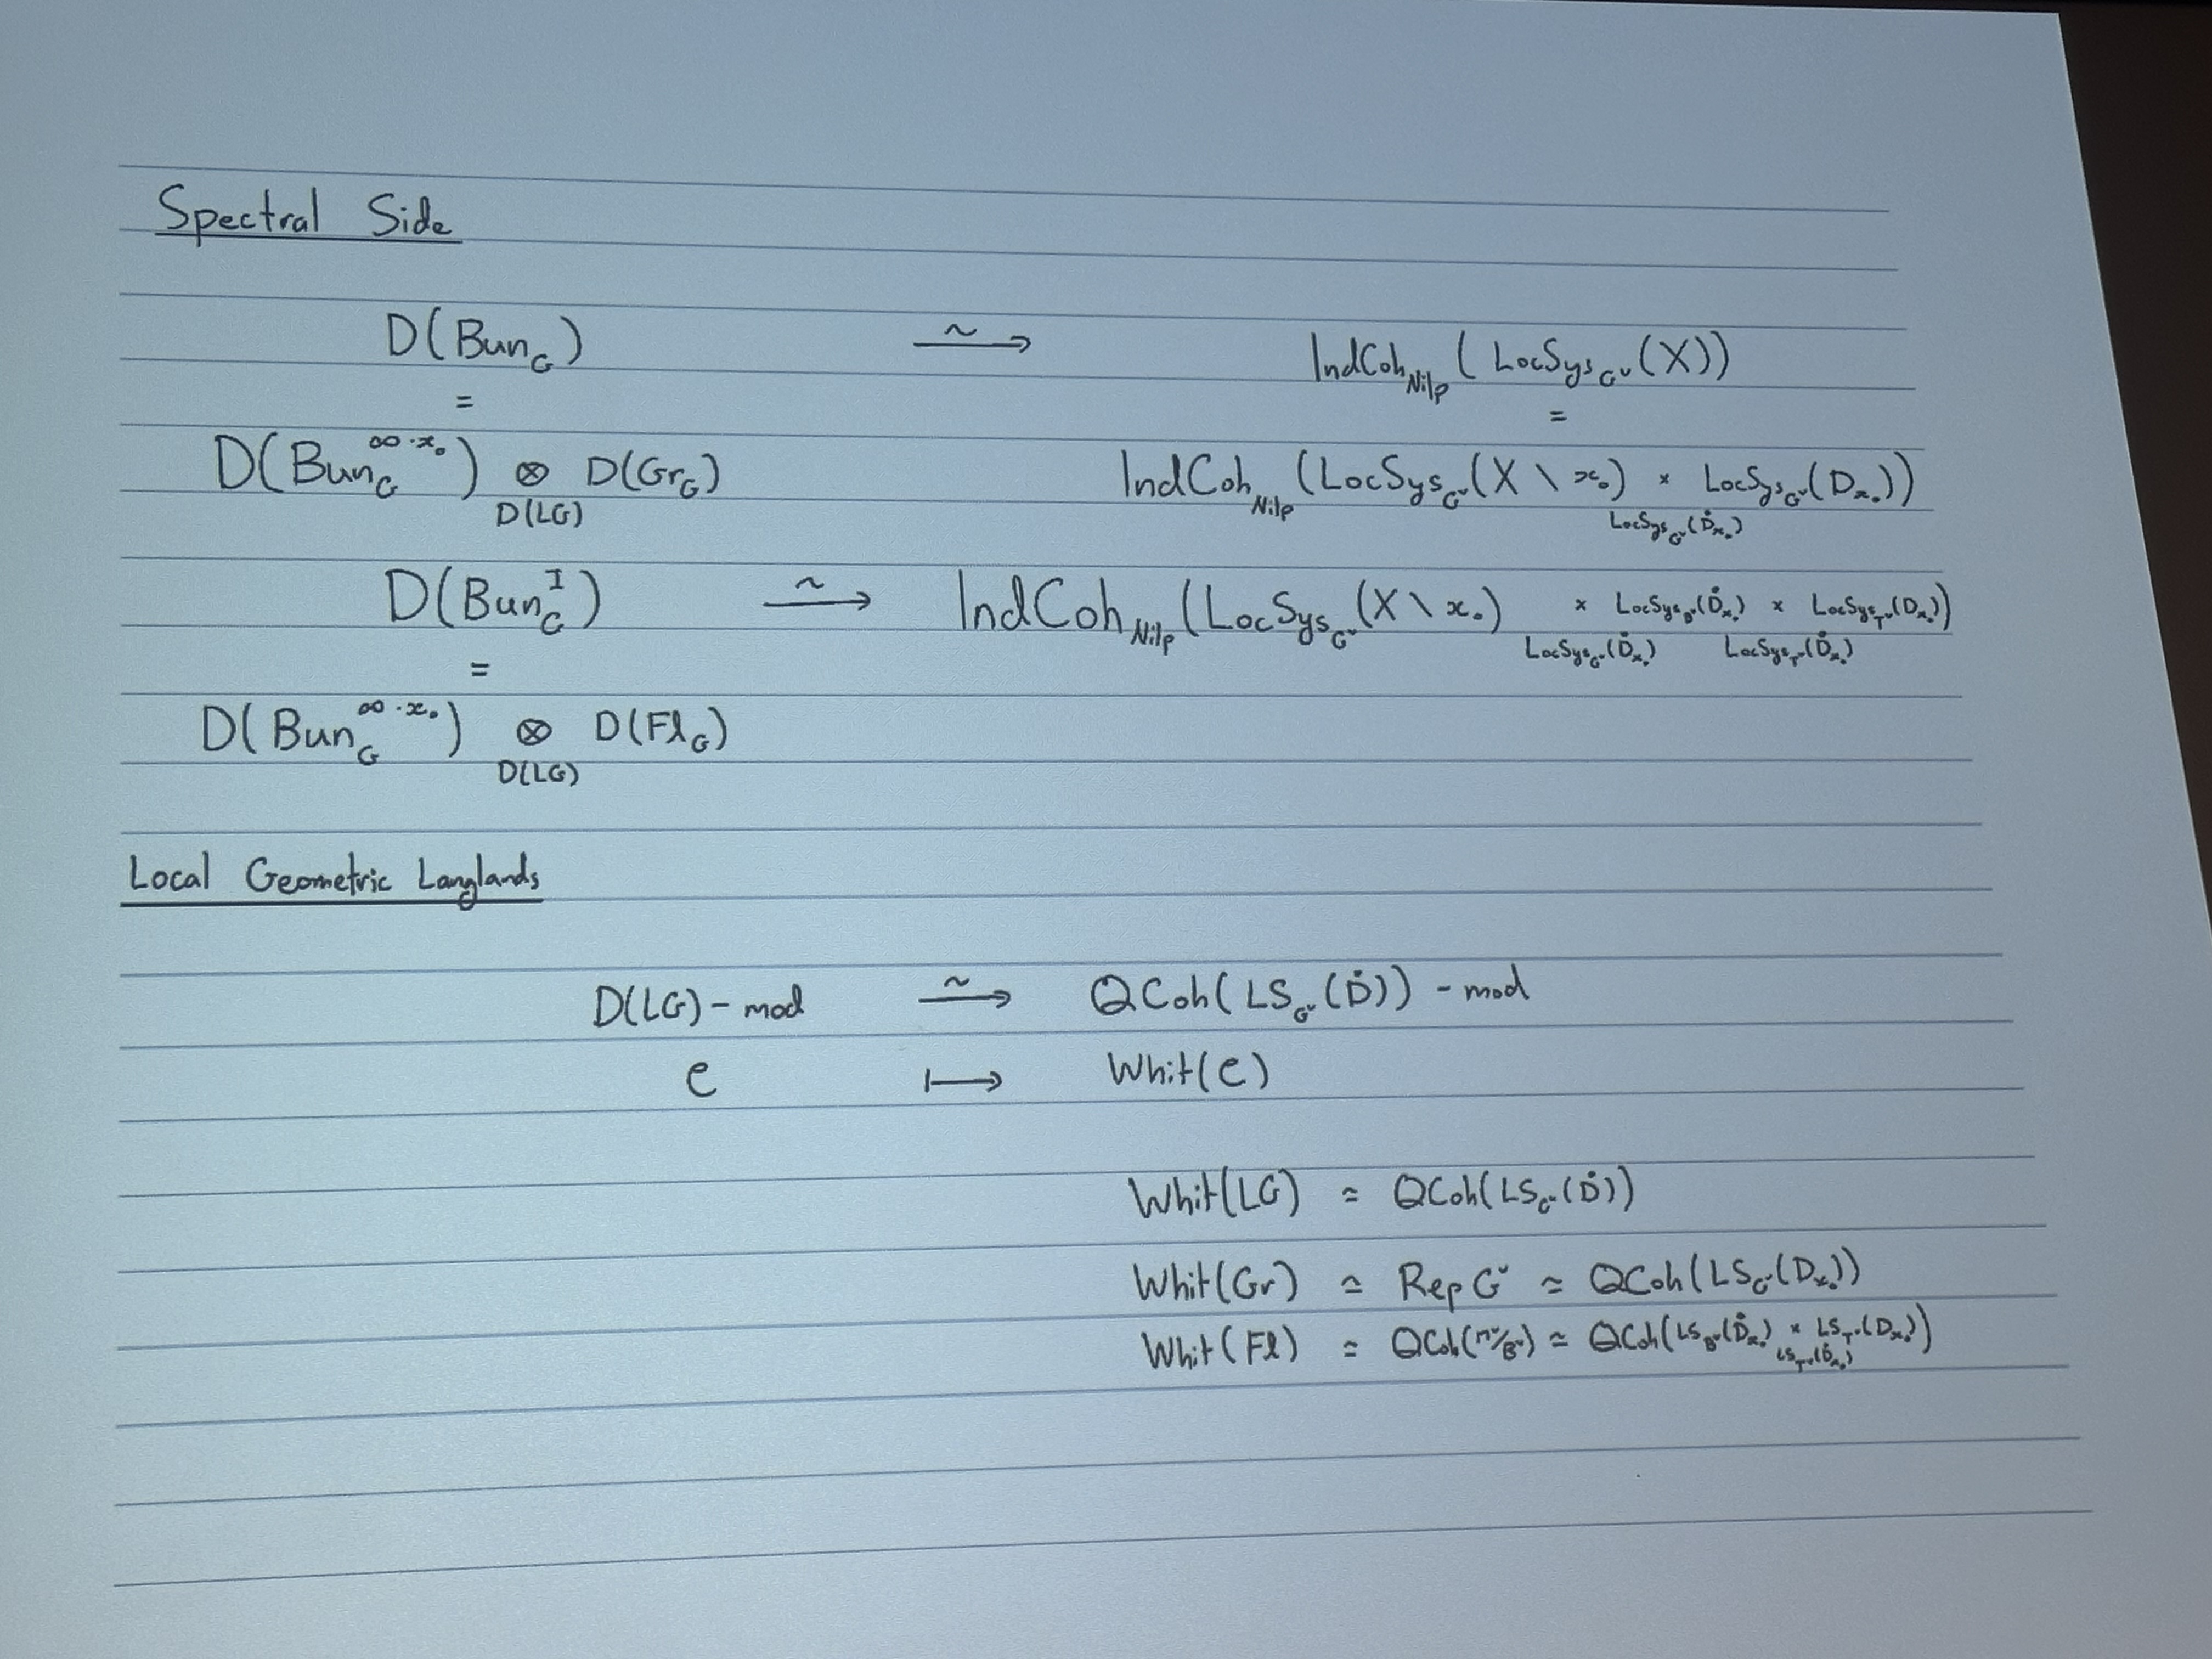 Spectral Side
D(Bun_G) ⥲ IndCoh_Nilp(LocSys_Gˇ(X))
= =
D(Bun_G^{∞·x₀}) ⊗_{D(LG)} D(Gr_G) IndCoh_Nilp(LocSys_Gˇ(X \ x₀) ×_{LocSys_Gˇ(D̊_{x₀})} LocSys_Gˇ(D_{x₀}))
D(Bun_G^I) ⥲ IndCoh_Nilp(LocSys_Gˇ(X \ x₀) ×_{LocSys_Gˇ(D̊_{x₀})} LocSys_Bˇ(D̊_{x₀}) ×_{LocSys_Tˇ(D̊_{x₀})} LocSys_Tˇ(D_{x₀}))
=
D(Bun_G^{∞·x₀}) ⊗_{D(LG)} D(Fl_G)
Local Geometric Langlands
D(LG)-mod ⥲ QCoh(LS_Gˇ(D̊))-mod
C ↦ Whit(C)
Whit(LG) ≃ QCoh(LS_Gˇ(D̊))
Whit(Gr) ≃ Rep Gˇ ≃ QCoh(LS_Gˇ(D_{x₀}))
Whit(Fl) ≃ QCoh(nˇ/Bˇ) ≃ QCoh(LS_Bˇ(D̊_{x₀}) ×_{LS_Tˇ(D̊_{x₀})} LS_Tˇ(D_{x₀}))